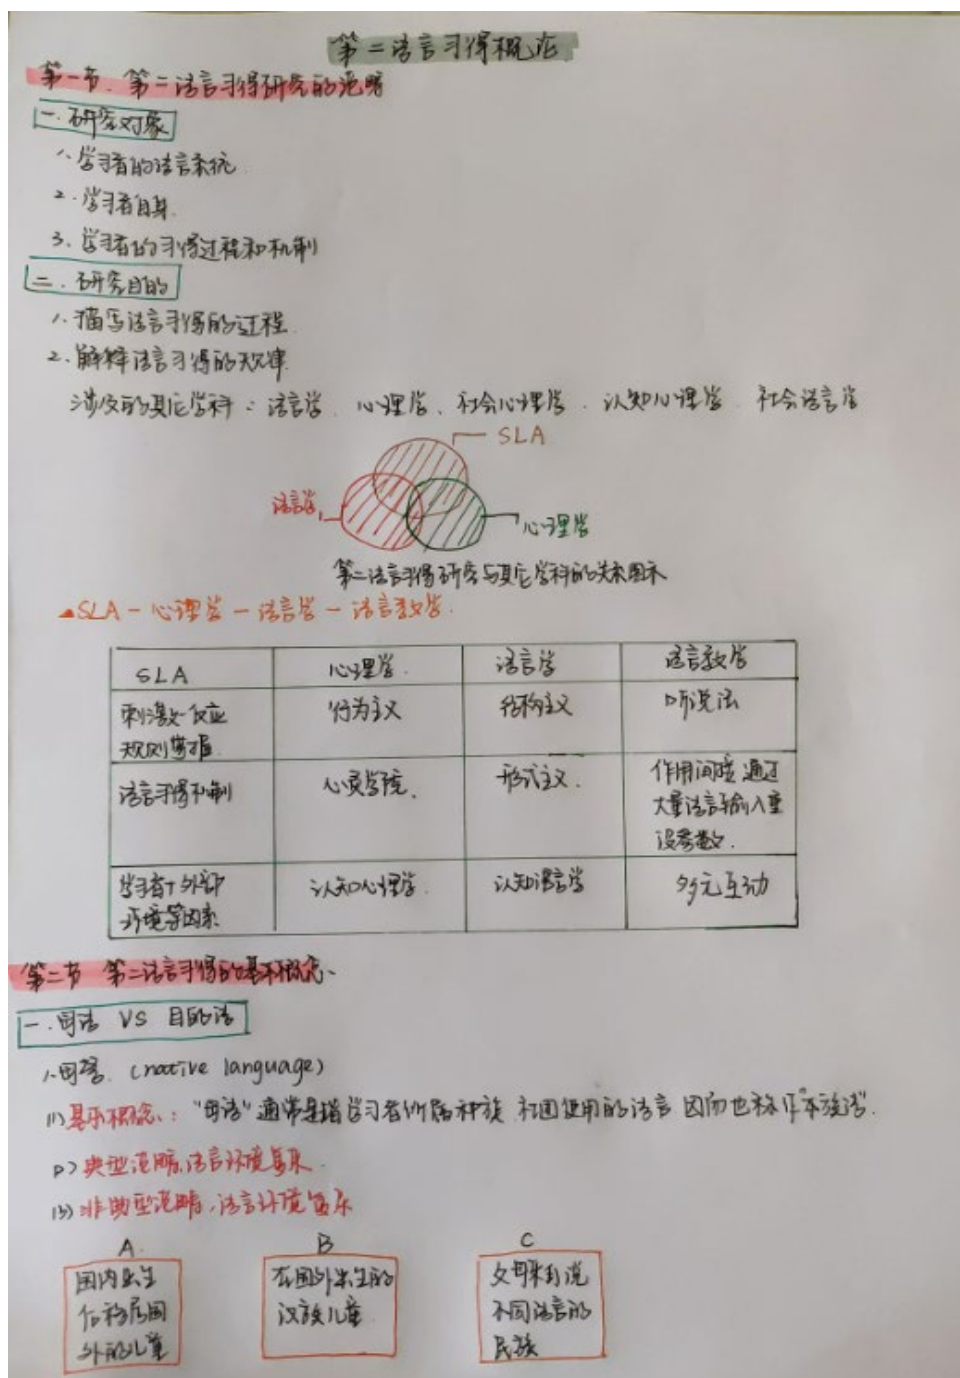 第二语言习得概论
第一节. 第二语言习得研究的范畴
一.研究对象
1.学习者的语言系统.
2.学习者自身.
3.学习者的习得过程和机制
二.研究目的
1.描写语言习得的过程.
2.解释语言习得的规律.
涉及的其它学科:语言学、心理学、社会心理学.认知心理学 社会语言学
SLA
语言学
心理学
第二语言习得研究与其它学科的关系图示
SLA-心理学-语言学-语言教学.
SLA 心理学. 语言学 语言教学
刺激-反应 行为主义 结构主义 听说法
规则
语言习得机制 心灵学院. 形式主义. 作用间接 通过
大量语言输入重
设参数.
学习者+外部 认知心理学. 认知语言学 多元互动
环境等因素
第二节 第二语言习得的基本概念、
一.母语 VS 目的语
1.母语. (native language)
(1)基本概念:"母语"通常是指学习者所属种族 社团使用的语言 因而也称作"本族语".
(2)典型范畴,语言环境
(3)非典型范畴,语言环境
A. B C
国内出生
后移居国
外的儿童
在国外出生的
汉族儿童
父母来自说
不同语言的
民族